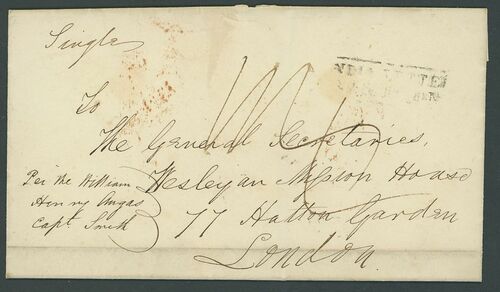 Single
INDIA LETTE
To
The General Secretaries,
Wesleyan Mission House
77 Hatton Garden
London.
Per the William
Henry Angas
Capt Smith